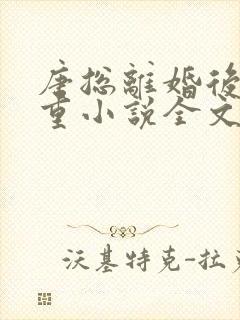 唐總離婚後
重小說全文
沃基特克-拉克